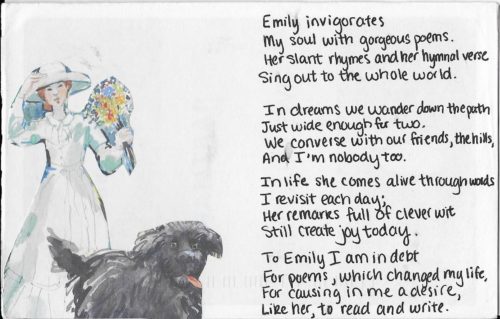 Emily invigorates
My soul with gorgeous poems.
Her slant rhymes and her hymnal verse
Sing out to the whole world.
In dreams we wander down the path
Just wide enough for two.
We converse with our friends, the hills,
And I'm nobody too.
In life she comes alive through words
I revisit each day;
Her remarks full of clever wit
Still create joy today.
To Emily I am in debt
For poems, which changed my life,
For causing in me a desire,
Like her, to read and write.